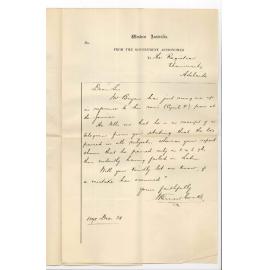 Western Australia.
No.
FROM THE GOVERNMENT ASTRONOMER
To The Registrar
University
Adelaide
Dear Sir
Mr Bryan has just rung me up
in reference to his son's
He tells me that he is in receipt of a
telegram from you stating that the boy
passed in all subjects, whereas your report
shows that he passed only in
having failed in Latin
Will you kindly let me know, if
a mistake has occurred
Yours faithfully
1898 Dec. 28